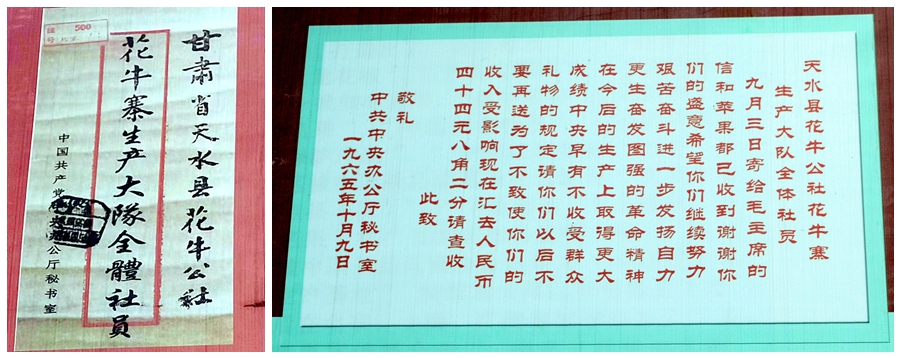 500
甘肃省天水县花牛公社
花牛寨生产大隊全體社員
中国共产党
公厅秘书室
天水县花牛公社花牛寨
生产大队全体社员
九月三日寄给毛主席的
信和苹果都已收到谢谢你
们的盛意希望你们继续努力
艰苦奋斗进一步发扬自力
更生奋发图强的革命精神
在今后的生产上取得更大
成绩中央早有不收受群众
礼物的规定请你们以后不
要再送为了不致使你们的
收入受影响现在汇去人民币
四十四元八角二分请查收
此致
敬礼
中共中央办公厅秘书室
一九六五年十月九日